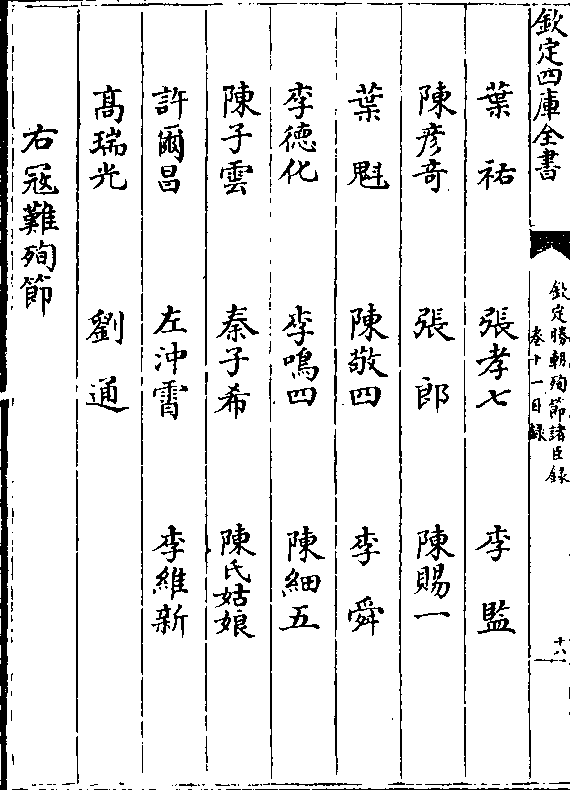 欽定四庫全書
欽定勝朝殉節諸臣錄
卷十一目錄
十六
葉祐 張孝七 李監
陳彦竒 張郎 陳賜一
葉魁 陳敬四 李舜
李德化 李鳴四 陳細五
陳子雲 秦子希 陳氏姑娘
許爾昌 左沖霄 李維新
髙瑞光 劉通
右冦難殉節